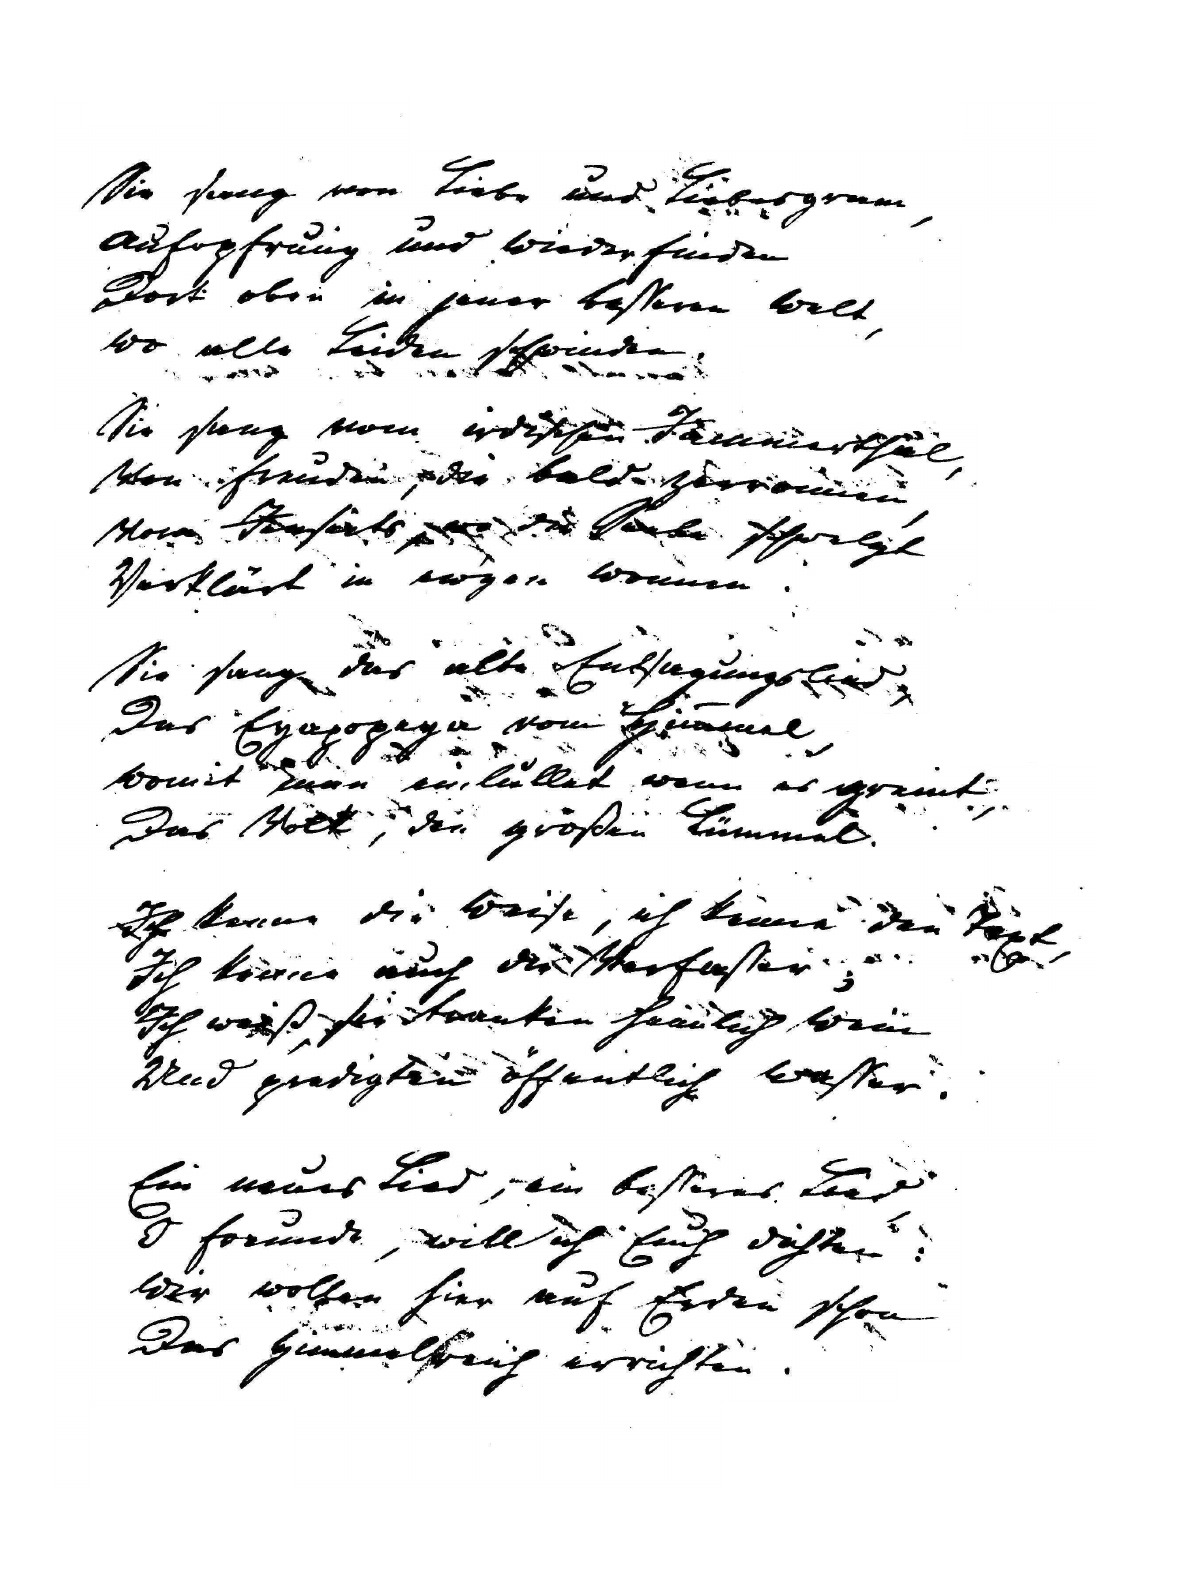 Sie sang von Liebe und Liebesgram,
Aufopfrung und Wiederfinden
Dort oben in jener besseren Welt,
Wo alle Leiden schwinden.
Sie sang vom irdischen Jammerthal,
Von Freuden, die bald zerronnen,
Vom Jenseits, wo die Seele schwelgt
Verklärt in ewgen Wonnen.
Sie sang das alte Entsagungslied,
Das Eyapopeya vom Himmel,
Womit man einlullet wenn es greint,
Das Volk, den großen Lümmel.
Ich kenne die Weise, ich kenne den Text,
Ich kenne auch die Verfasser;
Ich weiß, sie tranken heimlich Wein
Und predigten öffentlich Wasser.
Ein neues Lied, ein besseres Lied,
O Freunde, will ich Euch dichten:
Wir wollen hier auf Erden schon
Das Himmelreich errichten.